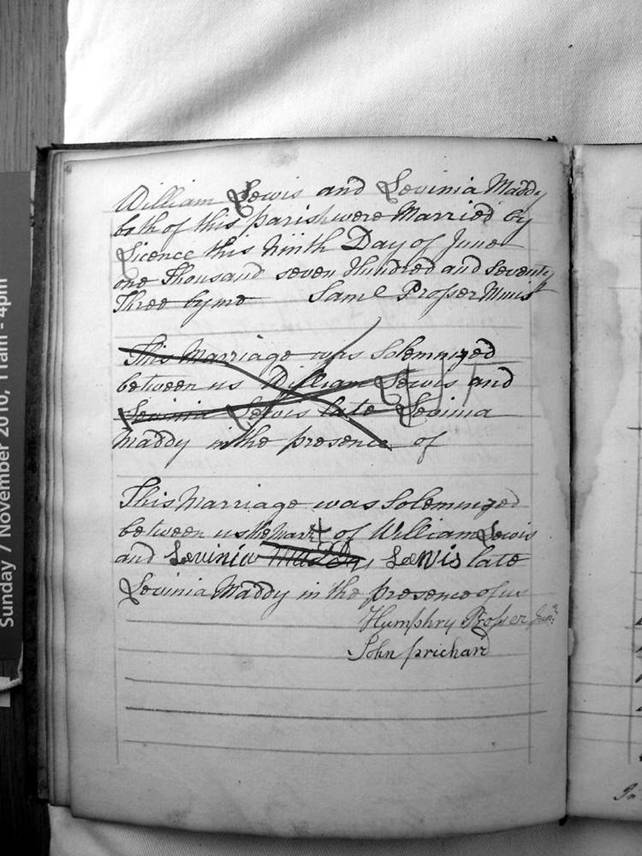 William Lewis and Levinia Maddy
both of this parish were Married by
Licence this Ninth Day of June
one Thousand seven Hundred and Seventy
Three by me Saml Prosser Minisr
This Marriage was Solemnized
between us William Lewis and
Levinia Lewis late Levinia
Maddy in the presence of
This Marriage was Solemnized
between us the mark + of William Lewis
and Levinia Maddy Lewis late
Levinia Maddy in the presence of us
Humphry Prosser Junr
John prichard
Sunday 7 November 2010, 11am - 4pm